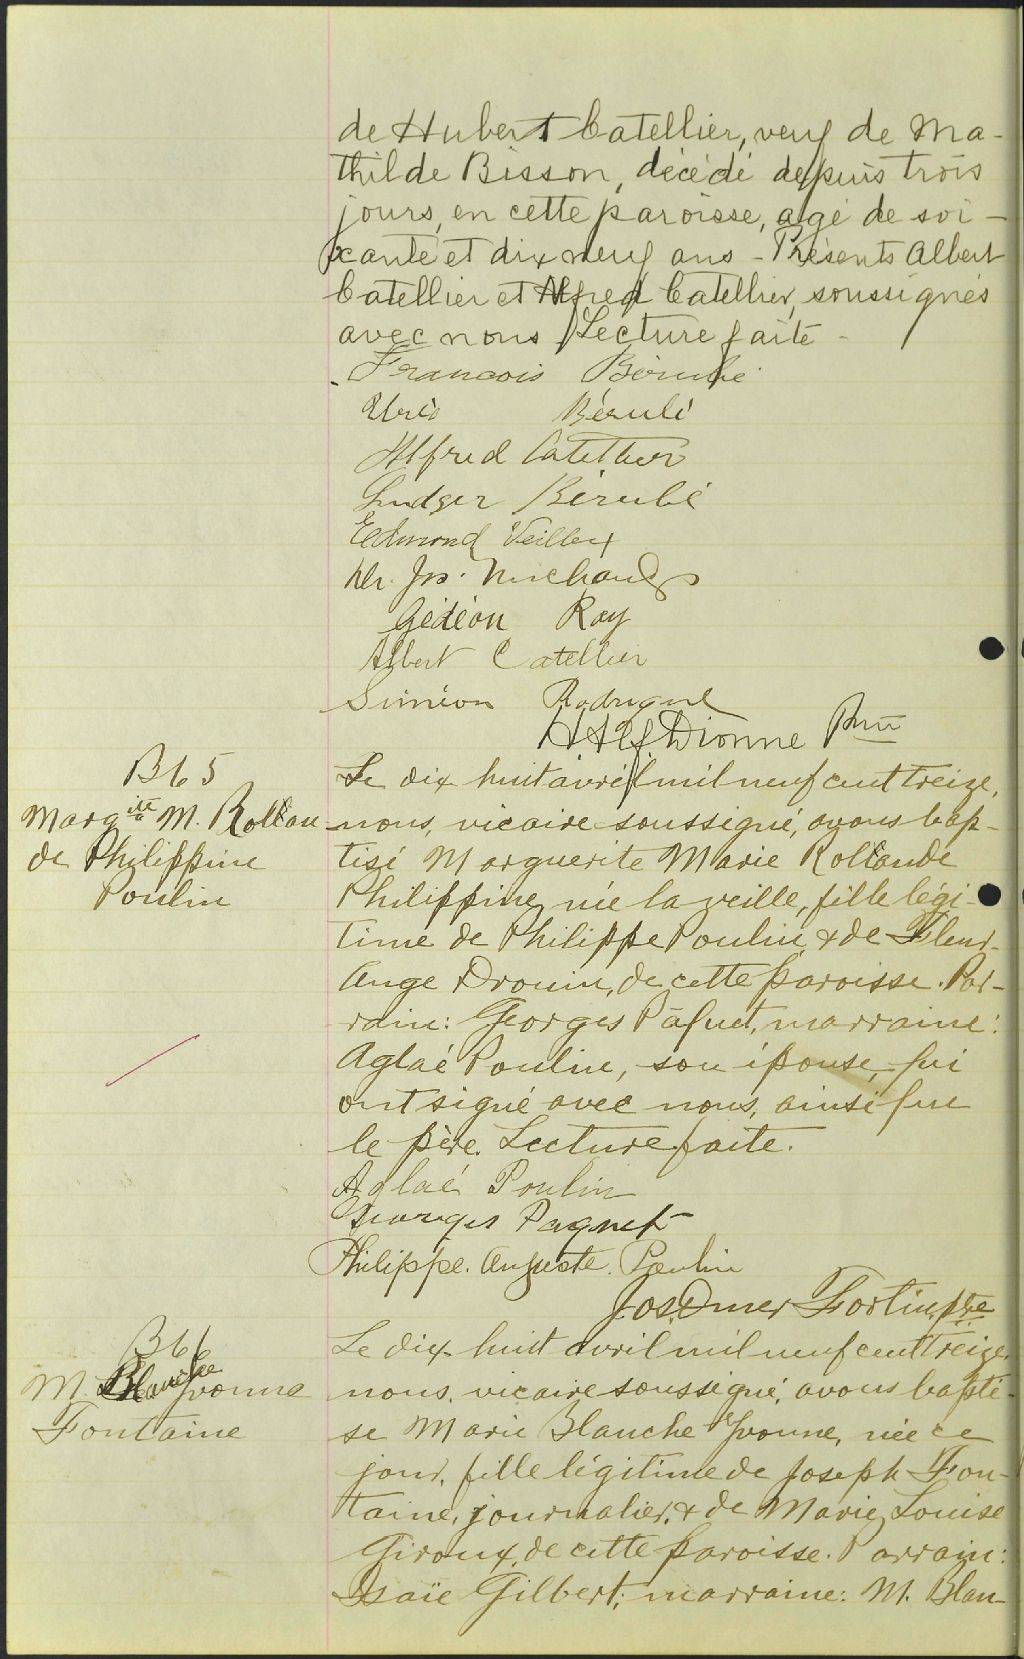 de Hubert Catellier, veuf de Ma-
thilde Bisson, décédé depuis trois
jours, en cette paroisse, agé de soi-
xante et dix neuf ans - Présents Albert
Catellier et Alfred Catellier, soussignés
avec nous Lecture faite -
Francois Bérubé
Bérubé
Alfred Catellier
Ludger Bérubé
Edmond Veilleux
Jos. Michaud
Gédéon Roy
Albert Catellier
Siméon Rodrigue
H Alf Dionne Ptre
B 65
Margite M. Rollan
de Philippine
Poulin
Le dix huit avril mil neuf cent treize,
nous, vicaire soussigné, avons bap-
tisé Marguerite Marie Rollande
Philippine, née la veille, fille légi-
time de Philippe Poulin & de Fleur-
Ange Drouin, de cette paroisse. Par-
rain: Georges Pâquet, marraine:
Aglaé Poulin, son épouse, qui
ont signé avec nous, ainsi que
le père. Lecture faite.
Aglaé Poulin
Georges Paquet
Philippe. Auguste. Poulin
Jos. Omer Fortin, ptre
B 66
M. Blanche Yvonne
Fontaine
Le dix-huit avril mil neuf cent treize,
nous, vicaire soussigné, avons bapti-
sé Marie Blanche Yvonne, née ce
jour, fille légitime de Joseph Fon-
taine, journalier, & de Marie Louise
Giroux, de cette paroisse. Parrain:
Isaïe Gilbert; marraine: M. Blan-